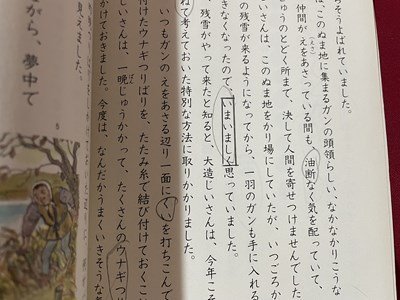 ちそうよばれていました。
は、このぬま地に集まるガンの頭領らしい、なかなかりこうな
仲間がえをあさっている間も、油断なく気を配っていて、
じゅうのとどく所まで、決して人間を寄せつけませんでした
いさんは、このぬま地をかり場にしていたが、いつごろか
の残雪が来るようになってから、一羽のガンも手に入れる
きなくなったので、いまいましく思っていました。
残雪がやって来たと知ると、大造じいさんは、今年こそ
ねて考えておいた特別な方法に取りかかりました。
いつもガンのえをあさる辺り一面にくいを打ちこんで
付けたウナギつりばりを、たたみ糸で結び付けておくこ
いさんは、一晩じゅうかかって、たくさんのウナギつ
かけておきました。今度は、なんだかうまくいきそうな気
見えました。
がら、夢中で